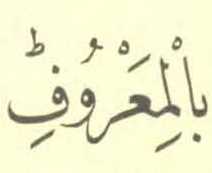 بِالْمَعْرُوْفِؕ